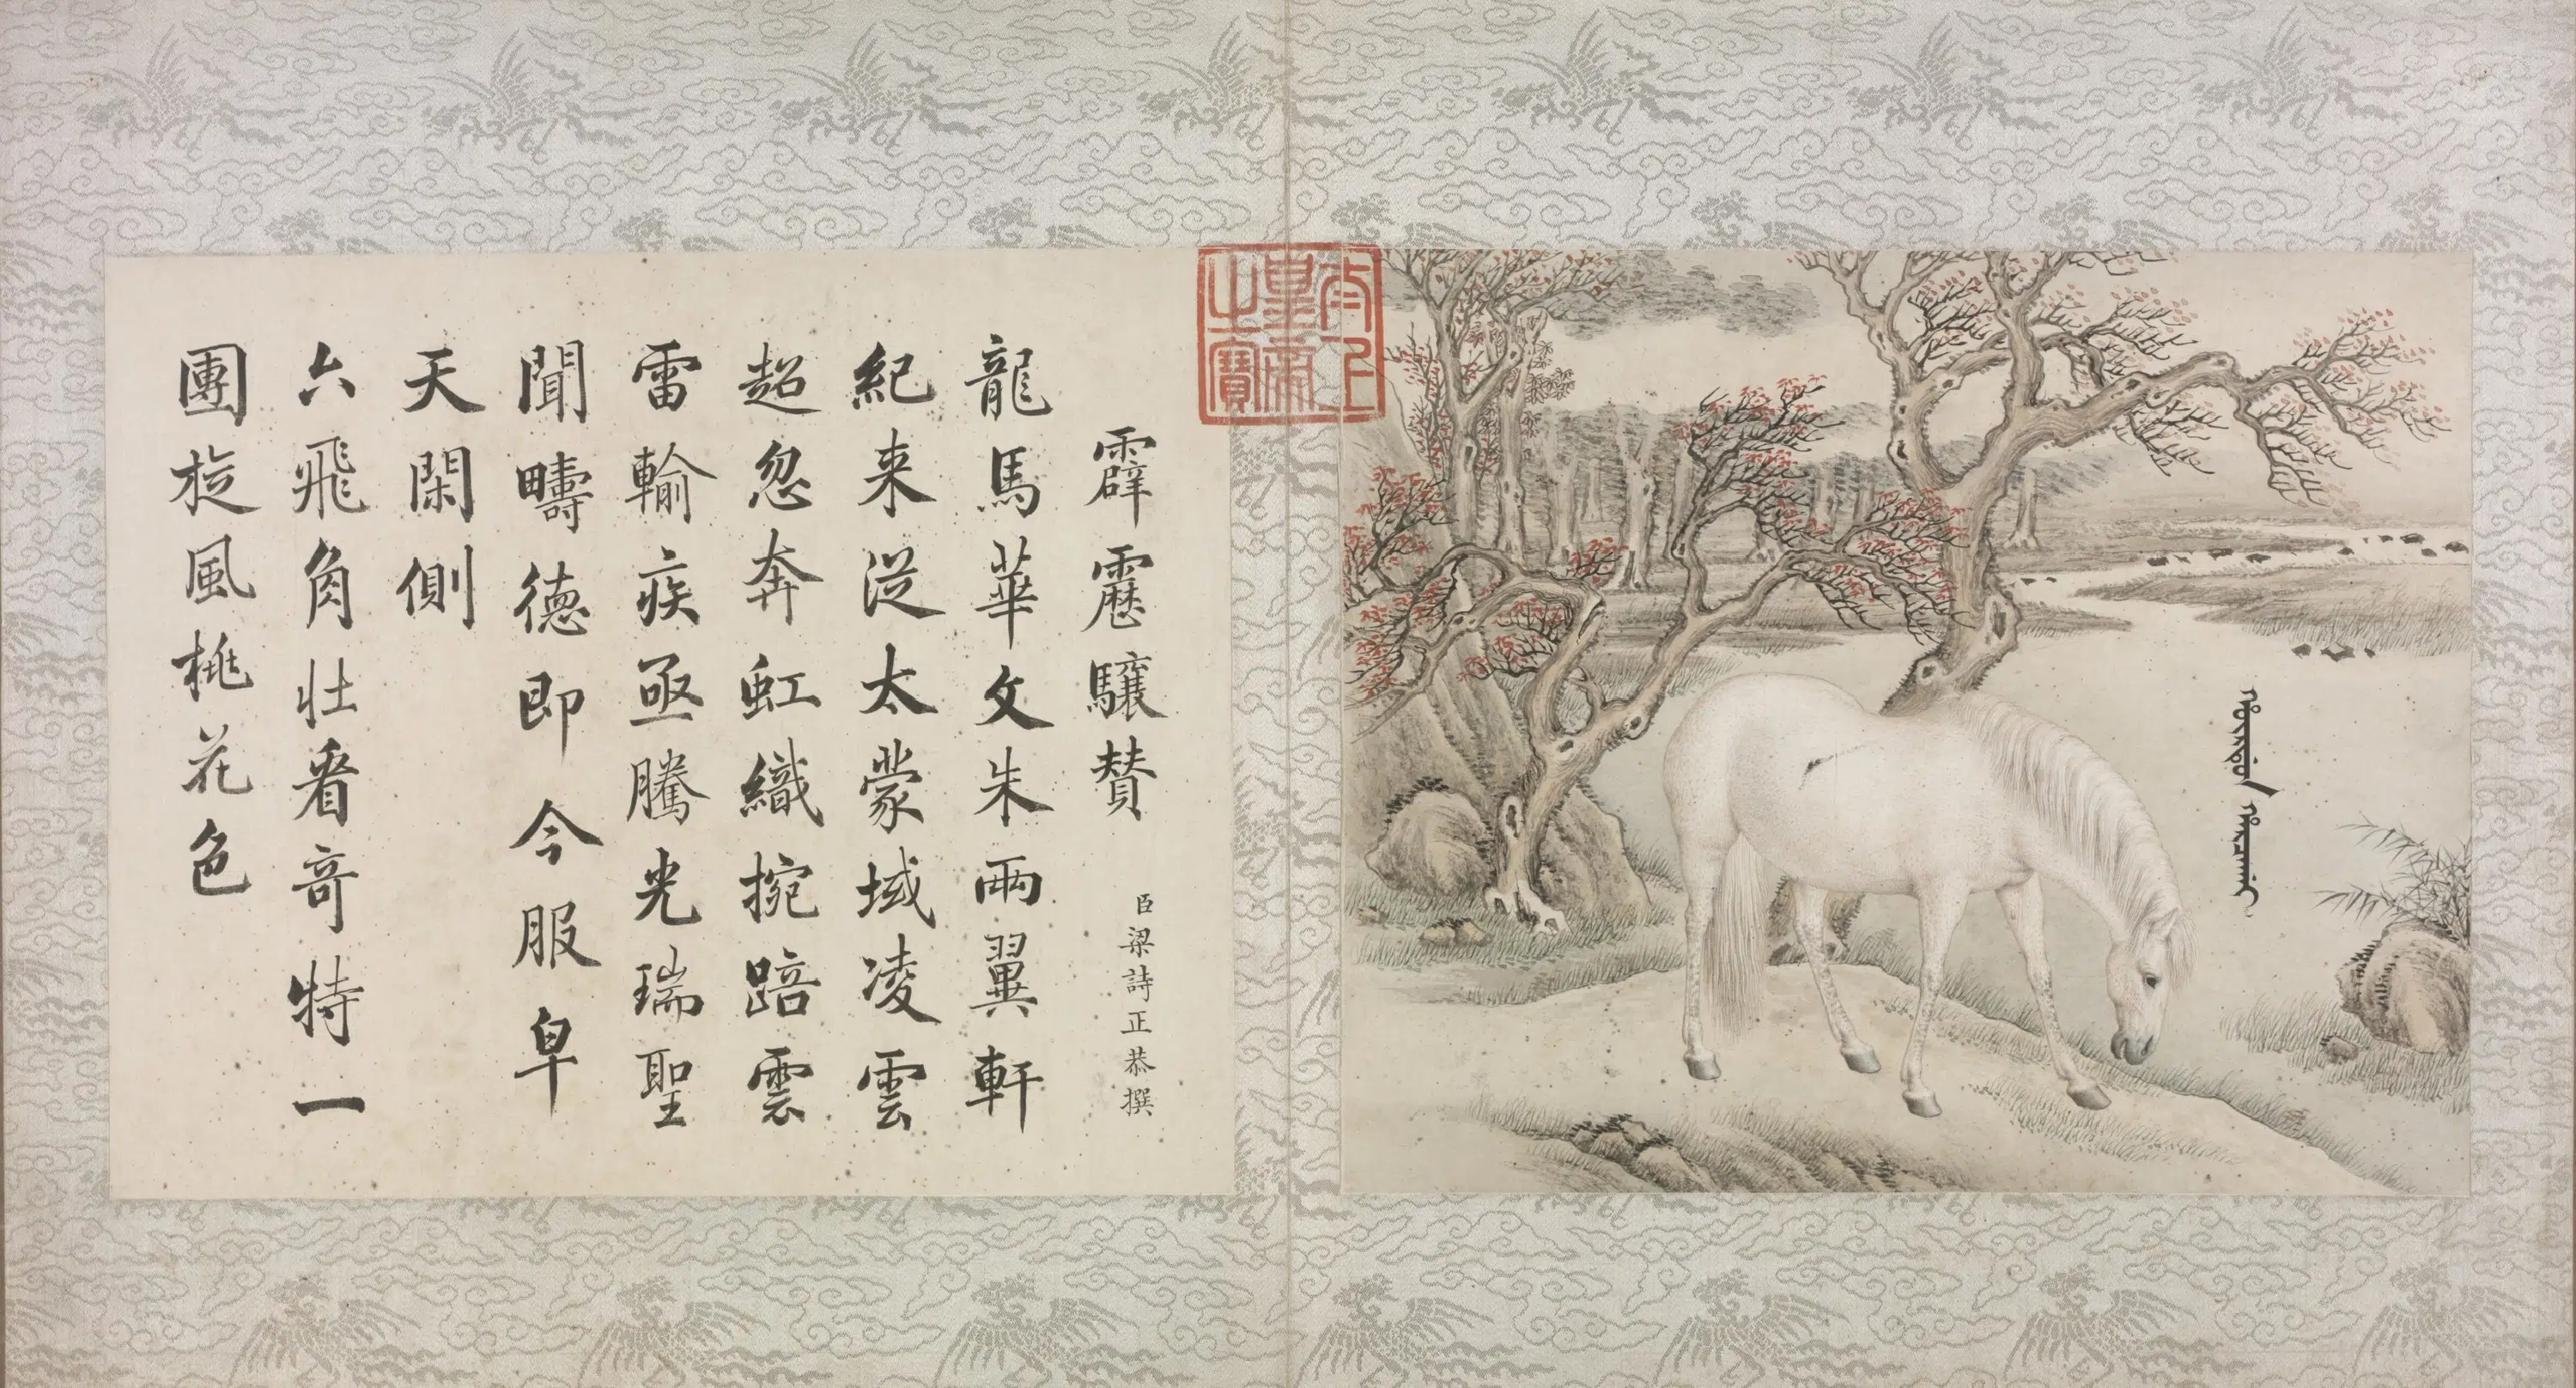 太上
皇帝
之寶
霹靂驤贊 臣梁詩正恭撰
龍馬華文朱兩翼軒
紀来從太蒙域凌雲
超忽奔虹織捥踣雲
雷輸疾亟騰光瑞聖
聞疇德即今服皁
天閑側
六飛角壯看奇特一
團旋風桃花色